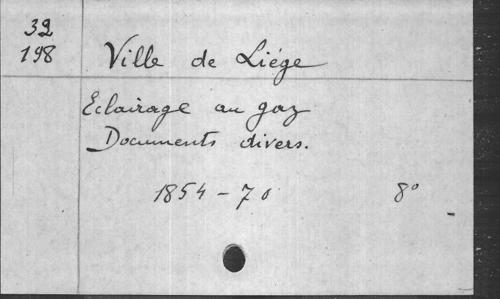 32
198
Ville de Liége
Eclairage au gaz
Documents divers.
1854-70 8°